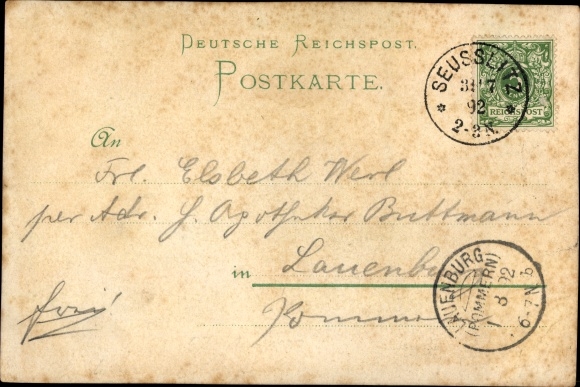 DEUTSCHE REICHSPOST.
POSTKARTE.
SEUSSLITZ
31 7
92
2-3N.
REICHSPOST
An
Frl. Elsbeth Werl
per Adr. H. Apotheker Buttmann
in Lauenburg
Pommern
frei!
LAUENBURG
(POMMERN)
1 8 92
6-7N b